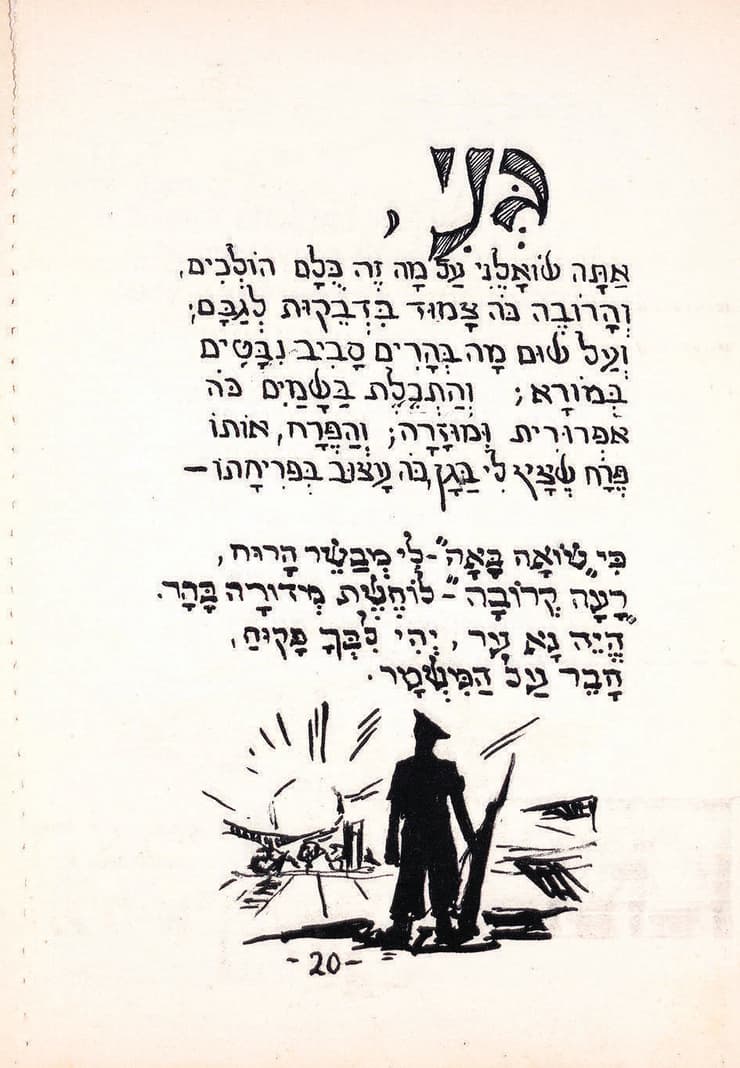 בְּנִי,
אַתָּה שׁוֹאֲלֵנִי עַל מָה זֶה כֻּלָּם הוֹלְכִים,
וְהָרוֹבֶה כֹּה צָמוּד בִּדְבֵקוּת לְגַבָּם;
וְעַל שׁוּם מָה בְּהָרִים סָבִיב נִבָּטִים
בְּמוֹרָא; וְהַתְּכֵלֶת בַּשָּׁמַיִם כֹּה
אַפְרוּרִית וּמוּזָרָה; וְהַפֶּרַח, אוֹתוֹ
פֶּרַח שֶׁצָּץ לִי בַּגָּן, כֹּה עָצוּב בִּפְרִיחָתוֹ –
כִּי "שׁוֹאָה בָּאָה" – לִי מְבַשֵּׂר הָרוּחַ,
"רָעָה קְרוֹבָה" – לוֹחֶשֶׁת מְדוּרָה בָּהָר.
הֱיֵה נָא עֵר, יְהִי לִבְּךָ פָּקוּחַ,
הָבֵר עַל הַמִּשְׁמָר.
-20-